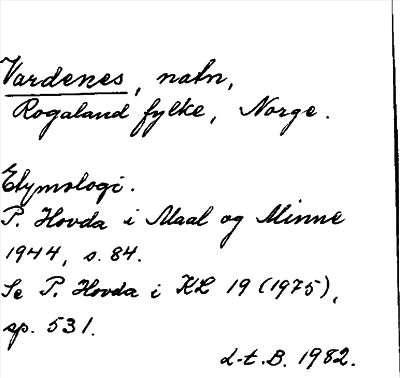 Vardenes, natn,
Rogaland fylke, Norge.
Etymologi.
P. Hovda i Maal og Minne
1944, s. 84.
Se P. Hovda i KL 19 (1975),
sp. 531.
L-t.B. 1982.